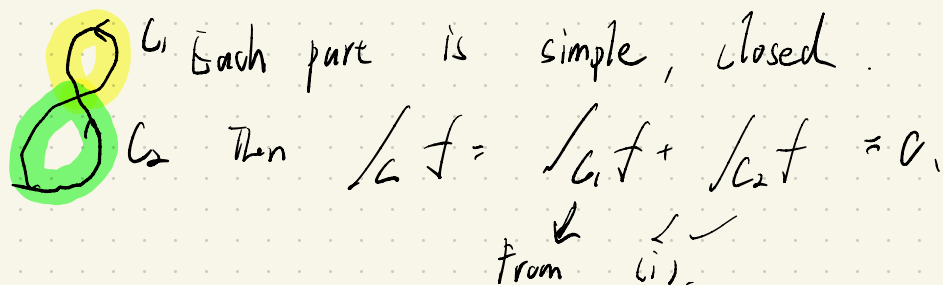 C₁ Each part is simple, closed.
C₂ Then ∫_C f = ∫_{C₁} f + ∫_{C₂} f = 0.
From (i).